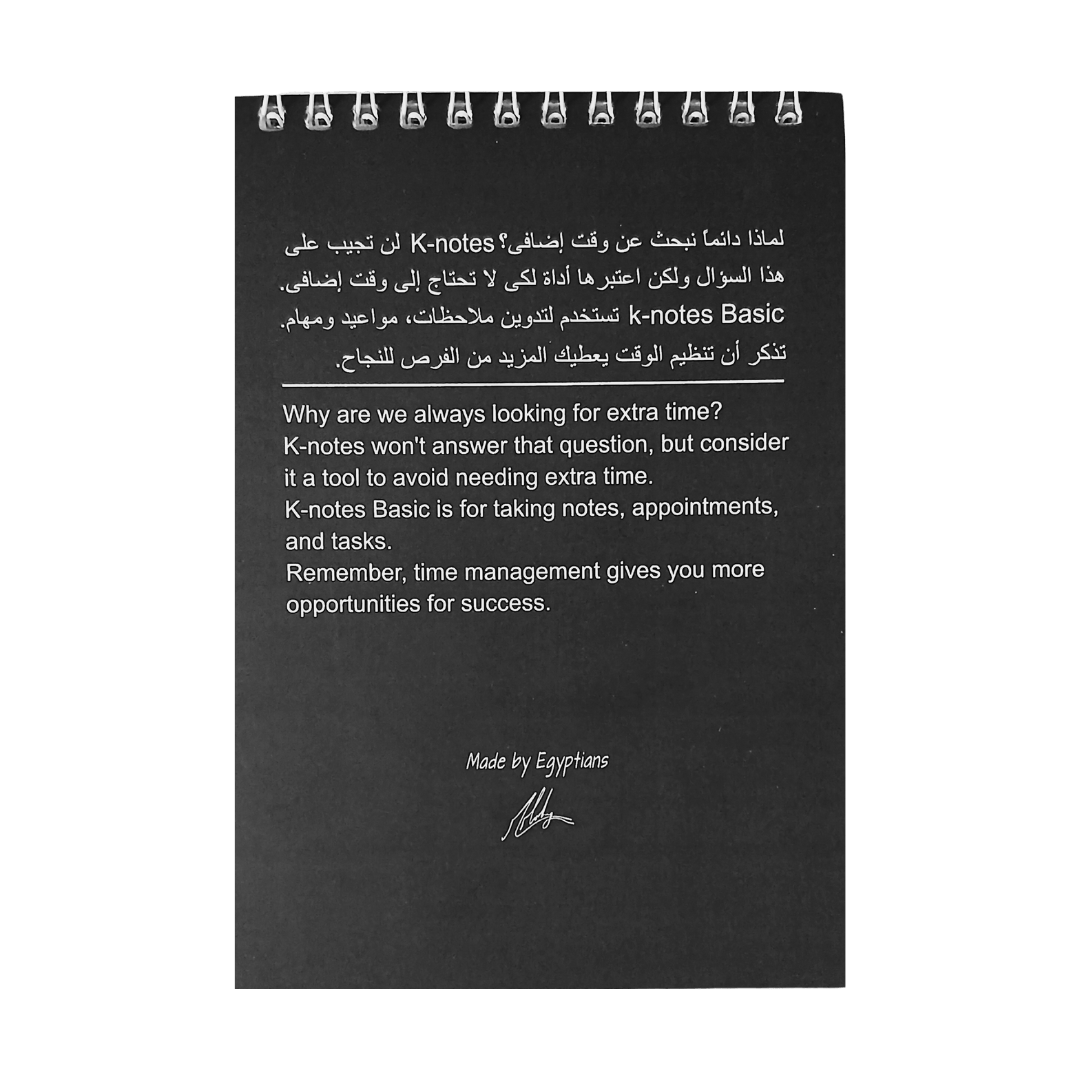 لماذا دائماً نبحث عن وقت إضافى؟ K-notes لن تجيب على
هذا السؤال ولكن اعتبرها أداة لكى لا تحتاج إلى وقت إضافى.
k-notes Basic تستخدم لتدوين ملاحظات، مواعيد ومهام.
تذكر أن تنظيم الوقت يعطيك المزيد من الفرص للنجاح.
Why are we always looking for extra time?
K-notes won't answer that question, but consider
it a tool to avoid needing extra time.
K-notes Basic is for taking notes, appointments,
and tasks.
Remember, time management gives you more
opportunities for success.
Made by Egyptians